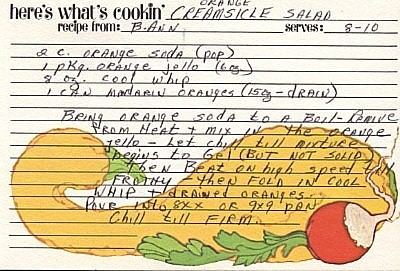 ORANGE
here's what's cookin' CREAMSICLE SALAD
recipe from: B. ANN serves: 8-10
2 c. ORANGE SODA (POP)
1 pkg. ORANGE JELLO (6oz)
8 oz. COOL WHIP
1 CAN MANDARIN ORANGES (15oz - DRAIN)
BRING ORANGE SODA TO A BOIL - REMOVE
FROM HEAT + MIX IN THE ORANGE
JELLO - LET CHILL TILL MIXTURE
BEGINS TO GEL (BUT NOT SOLID)
THEN BEAT ON HIGH SPEED TILL
FROTHY - THEN FOLD IN COOL
WHIP + DRAINED ORANGES.
POUR INTO 8X8 OR 9X9 PAN
CHILL TILL FIRM.